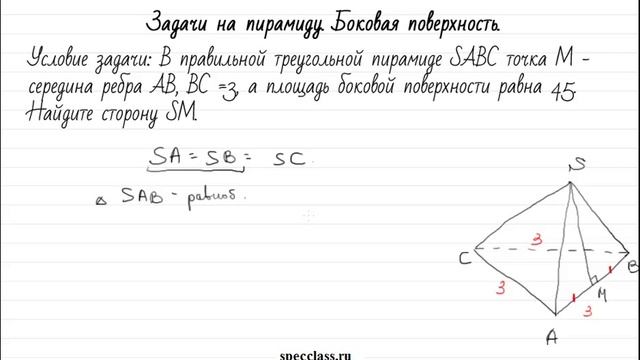 Задачи на пирамиду. Боковая поверхность.
Условие задачи: В правильной треугольной пирамиде SABC точка М -
середина ребра АВ, ВС =3, а площадь боковой поверхности равна 45.
Найдите сторону SM.
SA = SB = SC.
△ SAB - равноб.
S
C
3
B
3
M
3
A
specclass.ru